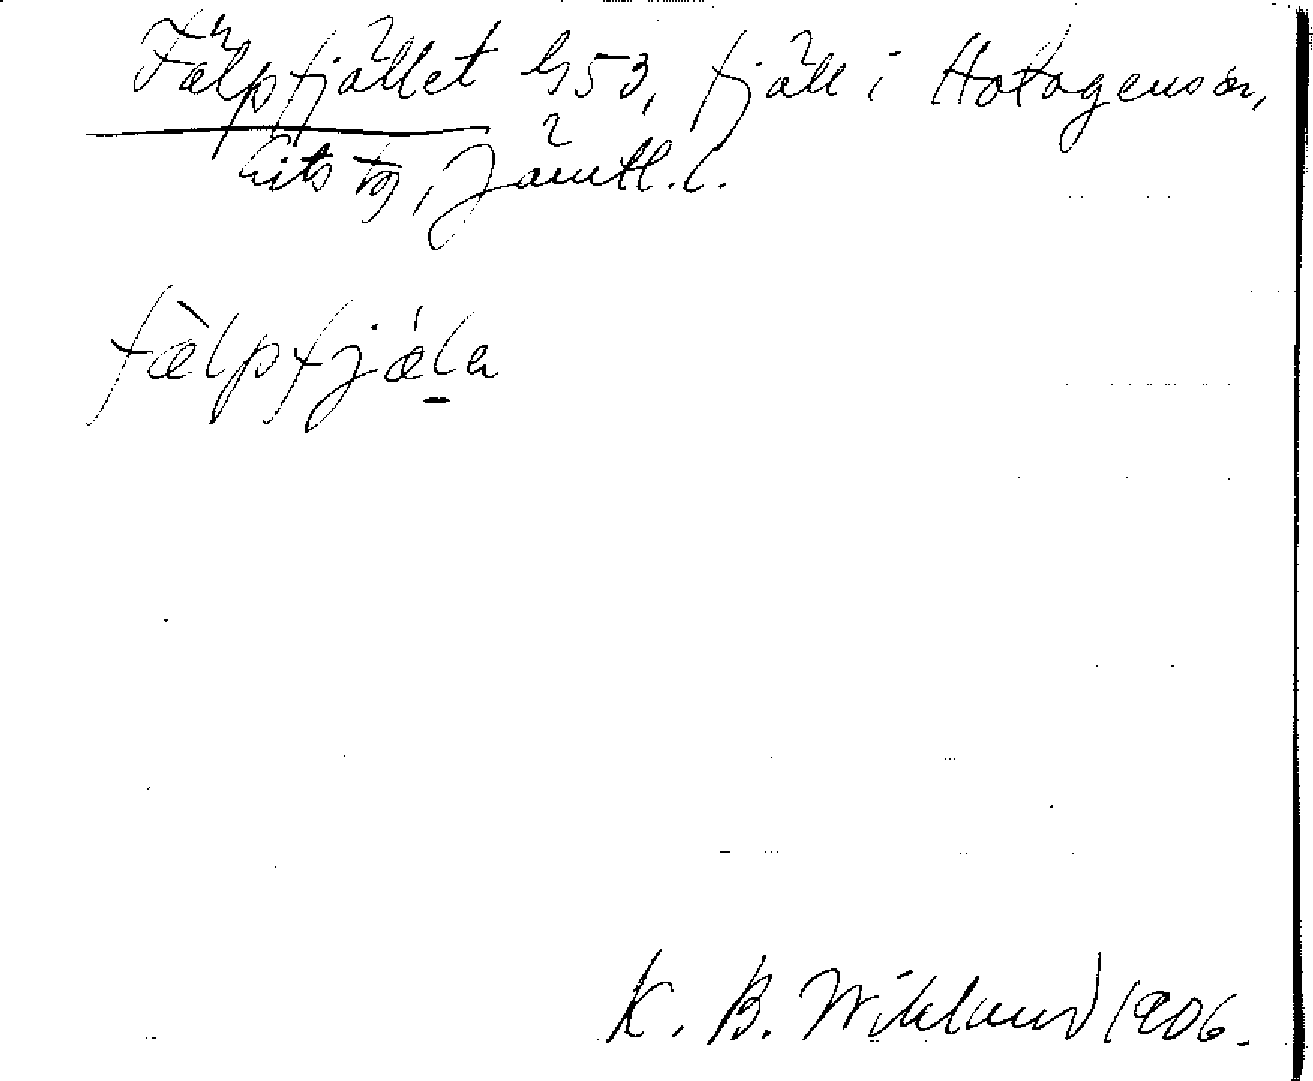 Fälpfjället G53, fjäll i Hotagens sn,
Lits tg, Jämtl. l.
fæ̀lpfjǽl̲a
K. B. Wiklund 1906.